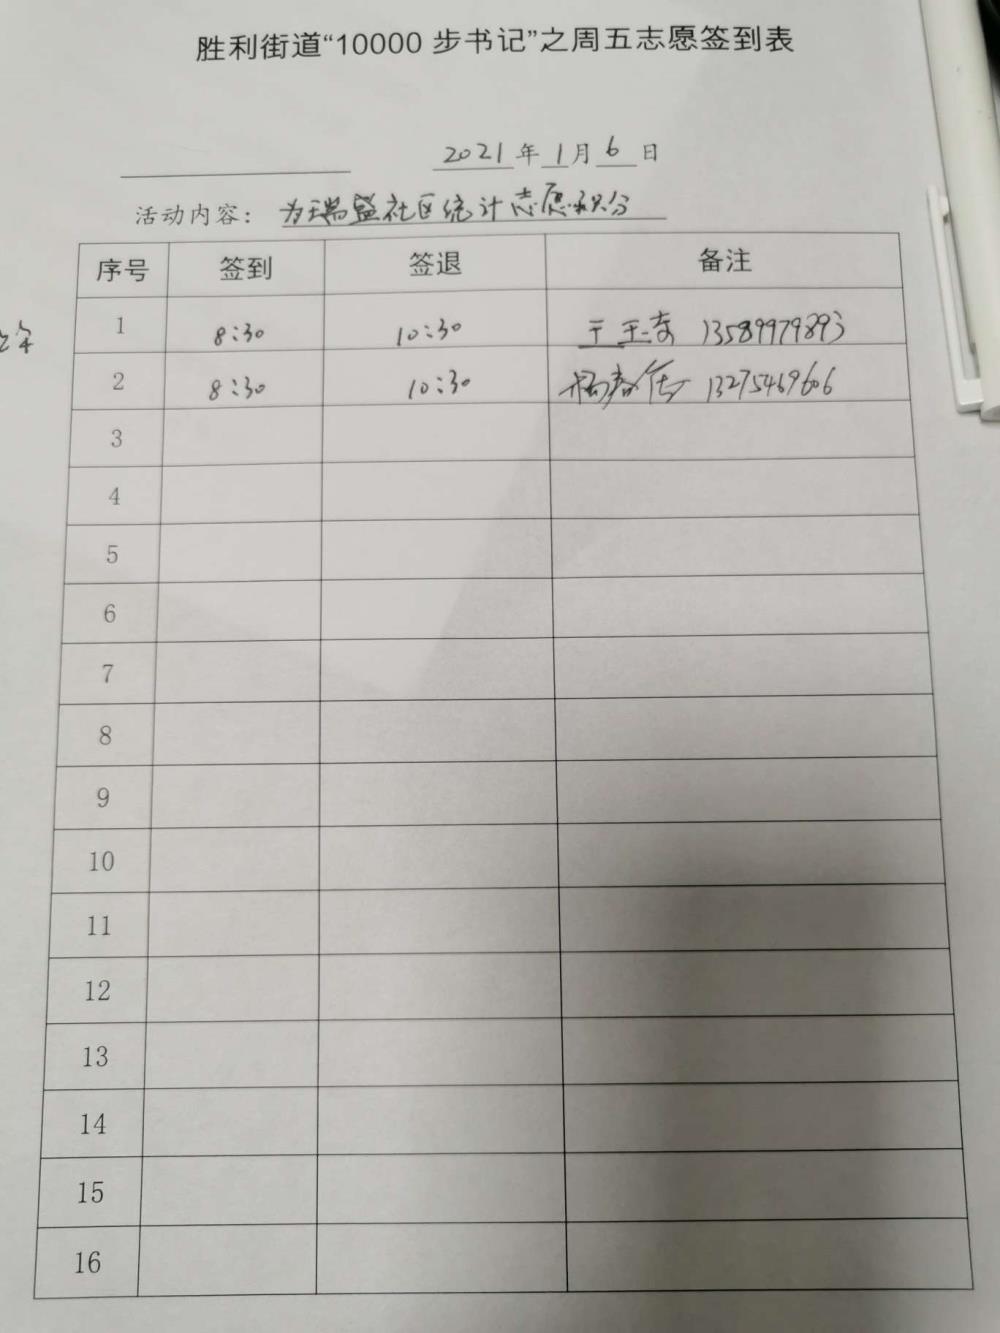 胜利街道“10000 步书记”之周五志愿签到表
2021 年 1 月 6 日
活动内容： 为瑞盛社区统计志愿积分
序号 签到 签退 备注
1 8:30 10:30 13589979893
2 8:30 10:30 杨春 13275469606
3
4
5
6
7
8
9
10
11
12
13
14
15
16